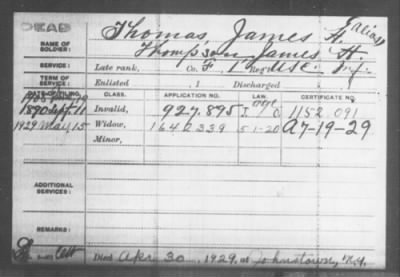 DEAD
NAME OF SOLDIER: Thomas, James H. (alias)
Thompson James H.
SERVICE: Late rank, Co. F, 1 Reg't U.S.C. Inf.
TERM OF SERVICE: Enlisted , 1 Discharged , 1
DATE OF FILING. CLASS. APPLICATION NO. LAW. CERTIFICATE NO.
1890 Sept. 11 Invalid, 927.895 1152.091
1929 May 15 Widow, 1640339 5-1-20 A7-19-29
Minor,
ADDITIONAL SERVICES:
REMARKS:
Died Apr 30, 1929, at Johnstown, N.Y.